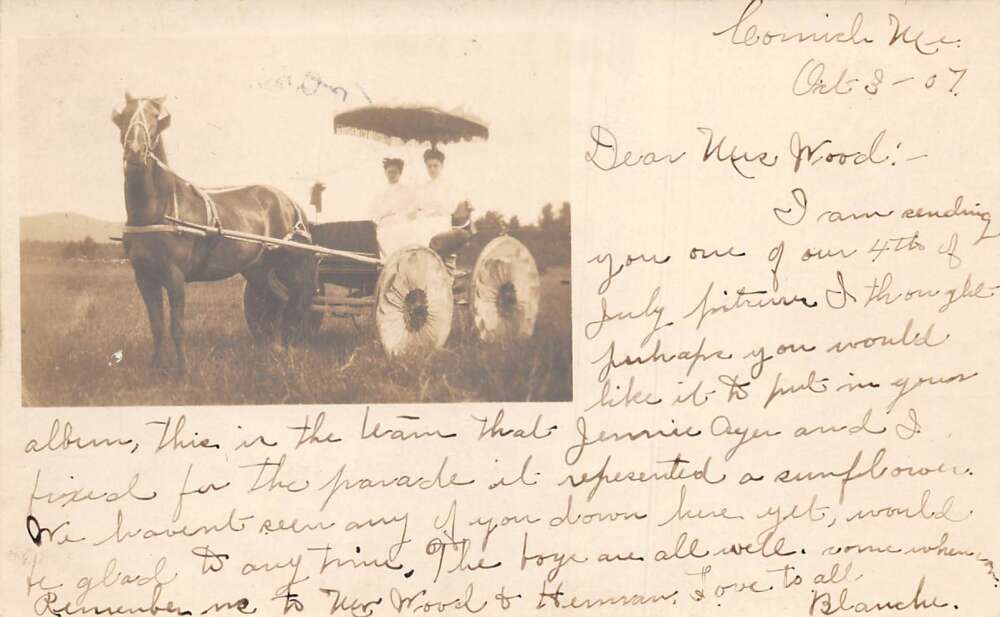 Cornish Me.
Oct 3 - 07.
Dear Mrs Wood:-
I am sending
you one of our 4th of
July pitures I thought
perhaps you would
like it to put in your
album, this is the team that Jennie Ayer and I
fixed for the parade it represented a sunflower.
We havent seen any of you down here yet, would
be glad to anytime. The boys are all well. come when
Remember me to Mr Wood & Herman. Love to all
Blanche.